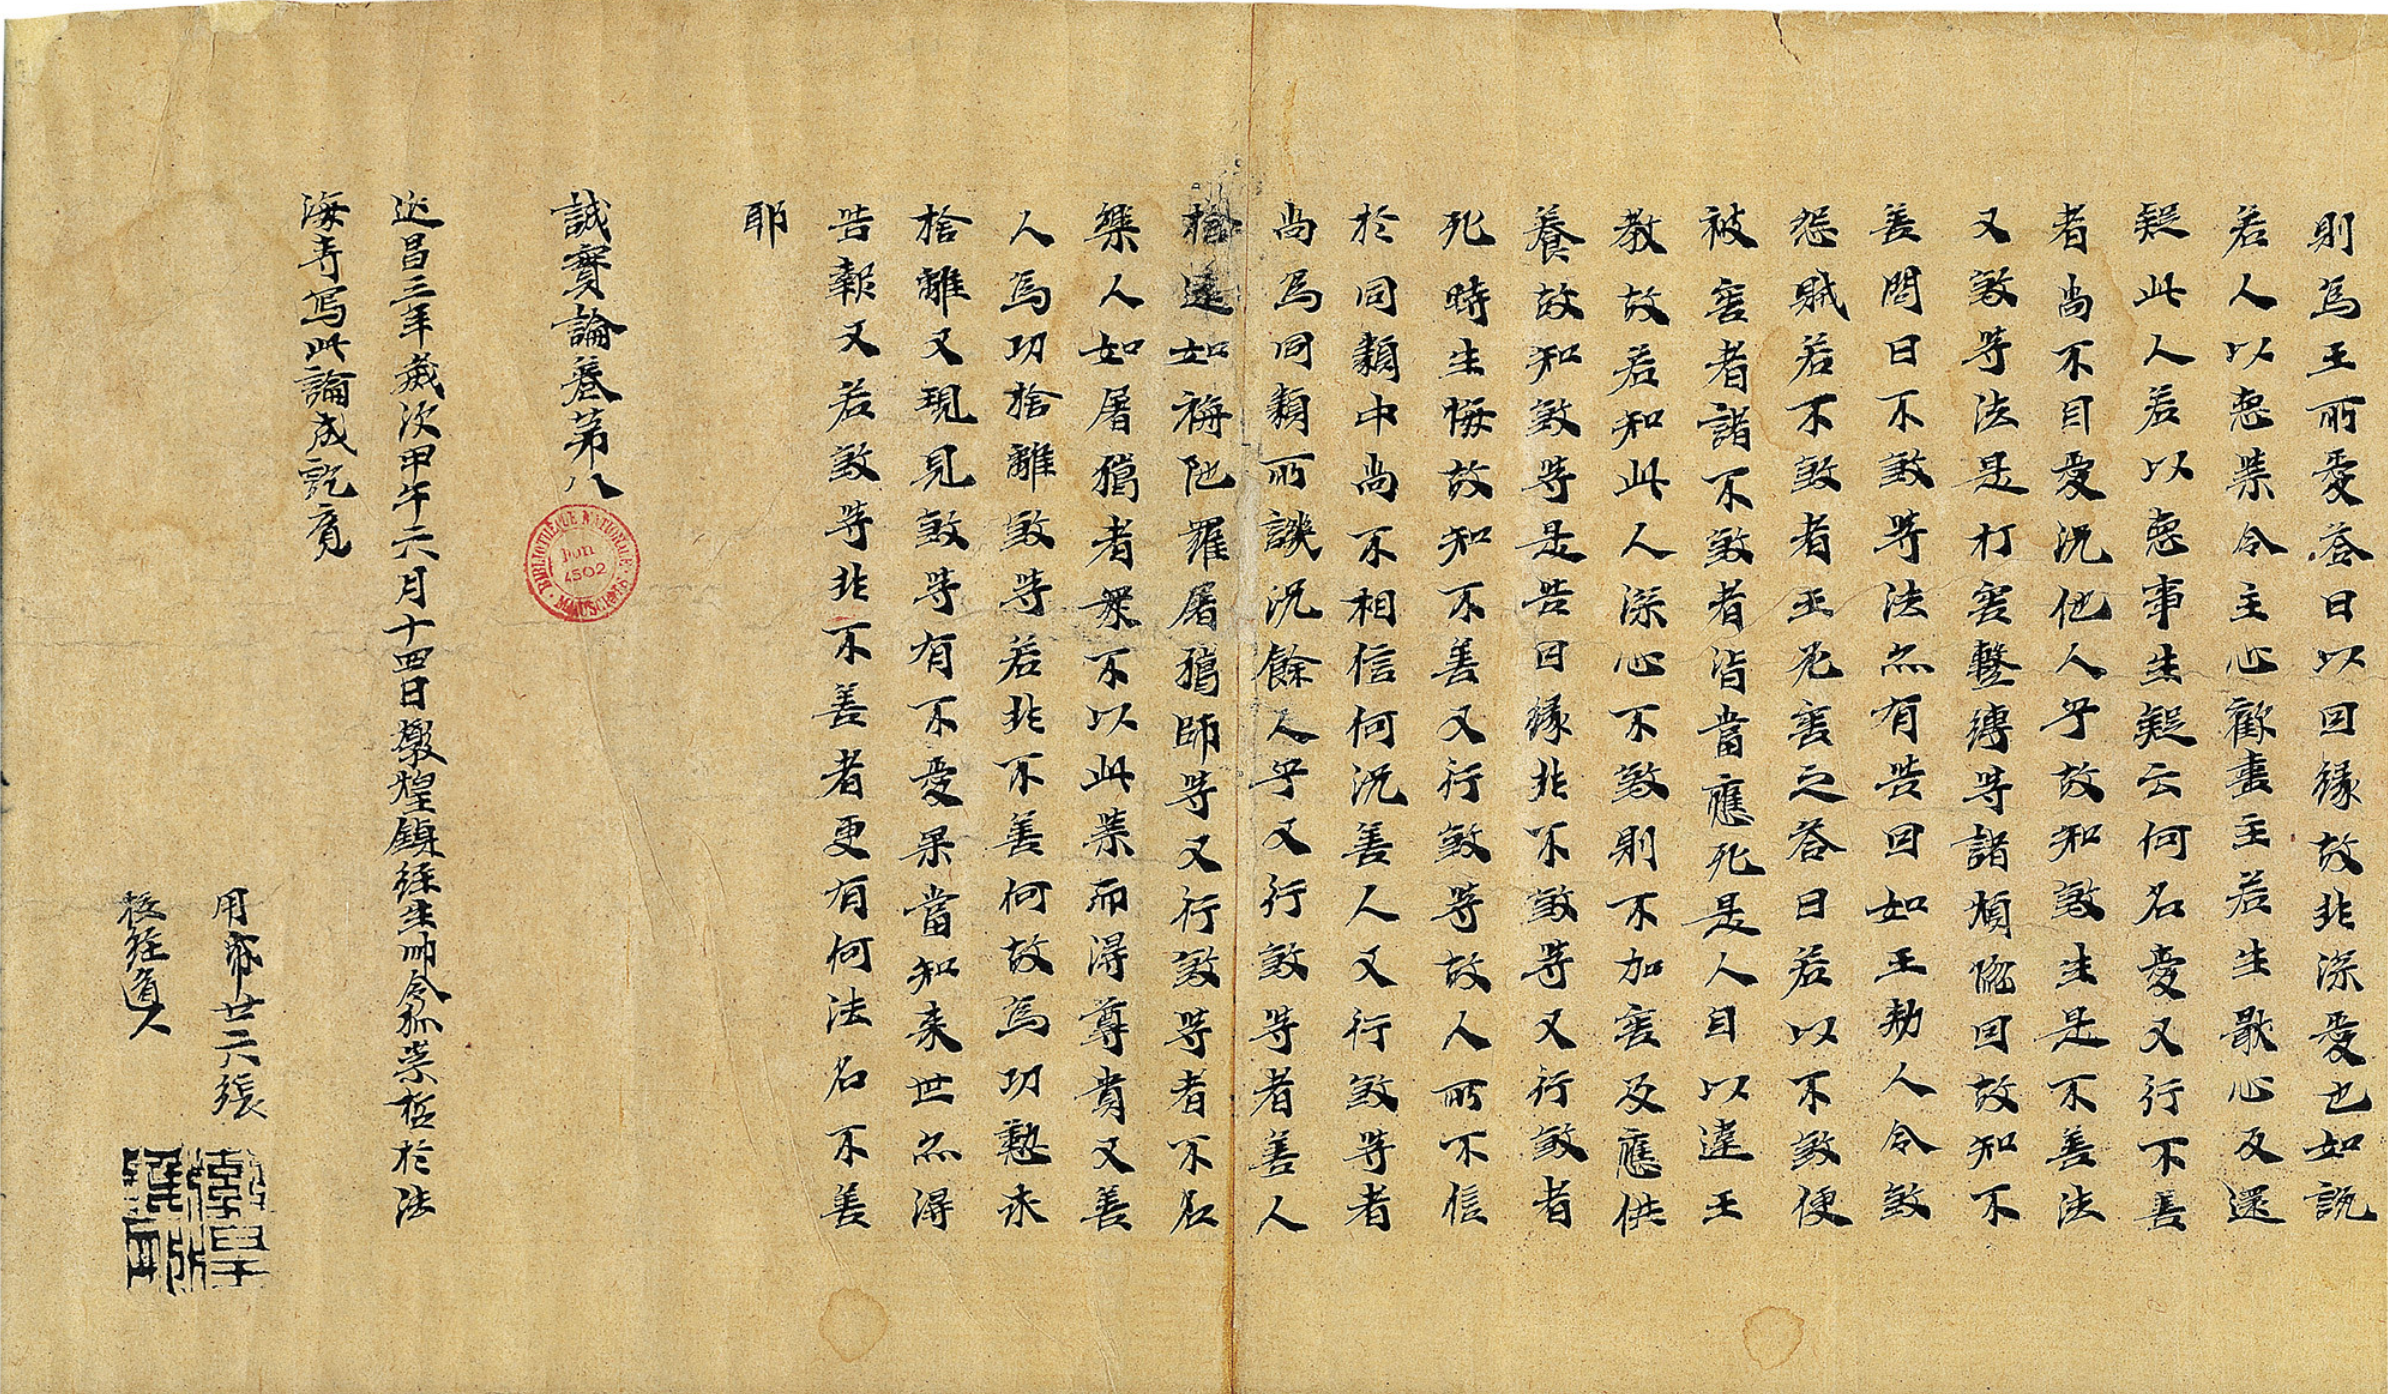 則爲王所愛答曰以因緣故非深愛也如説
若人以惡業令主心歡盡主若生厭心反還
疑此人若以惡事生疑云何名愛又行不善
者尚不自愛況他人乎故知煞生是不善法
又煞等法是打害繫縛等諸煩惱因故知不
善問曰不煞等法亦有苦因如王勅人令煞
怨賊若不煞者王必害之答曰若以不煞便
被害者諸不煞者皆當應死是人自以違王
教故若知此人深心不煞則不加害及應供
養故知煞等是苦因緣非不煞等又行煞者
死時生悔故知不善又行煞等故人所不信
於同類中尚不相信何況善人又行煞等者
尚爲同類所譏況餘人乎又行煞等者善人
捨遠如栴陁羅屠獵師等又行煞等者不名
樂人如屠獵者衆不以此業而得尊貴又善
人爲功捨離煞等若非不善何故爲功懃求
捨離又現見煞等有不愛果當知來世亦得
苦報又若煞等非不善者更有何法名不善
耶
誠實論卷第八
延昌三年歲次甲午六月十四日敦煌鎮經生師令狐崇哲於法
海寺寫此論成訖竟
用帋廿六張
校經道人
BIBLIOTHÈQUE NATIONALE
Don
4502
MANUSCRITS